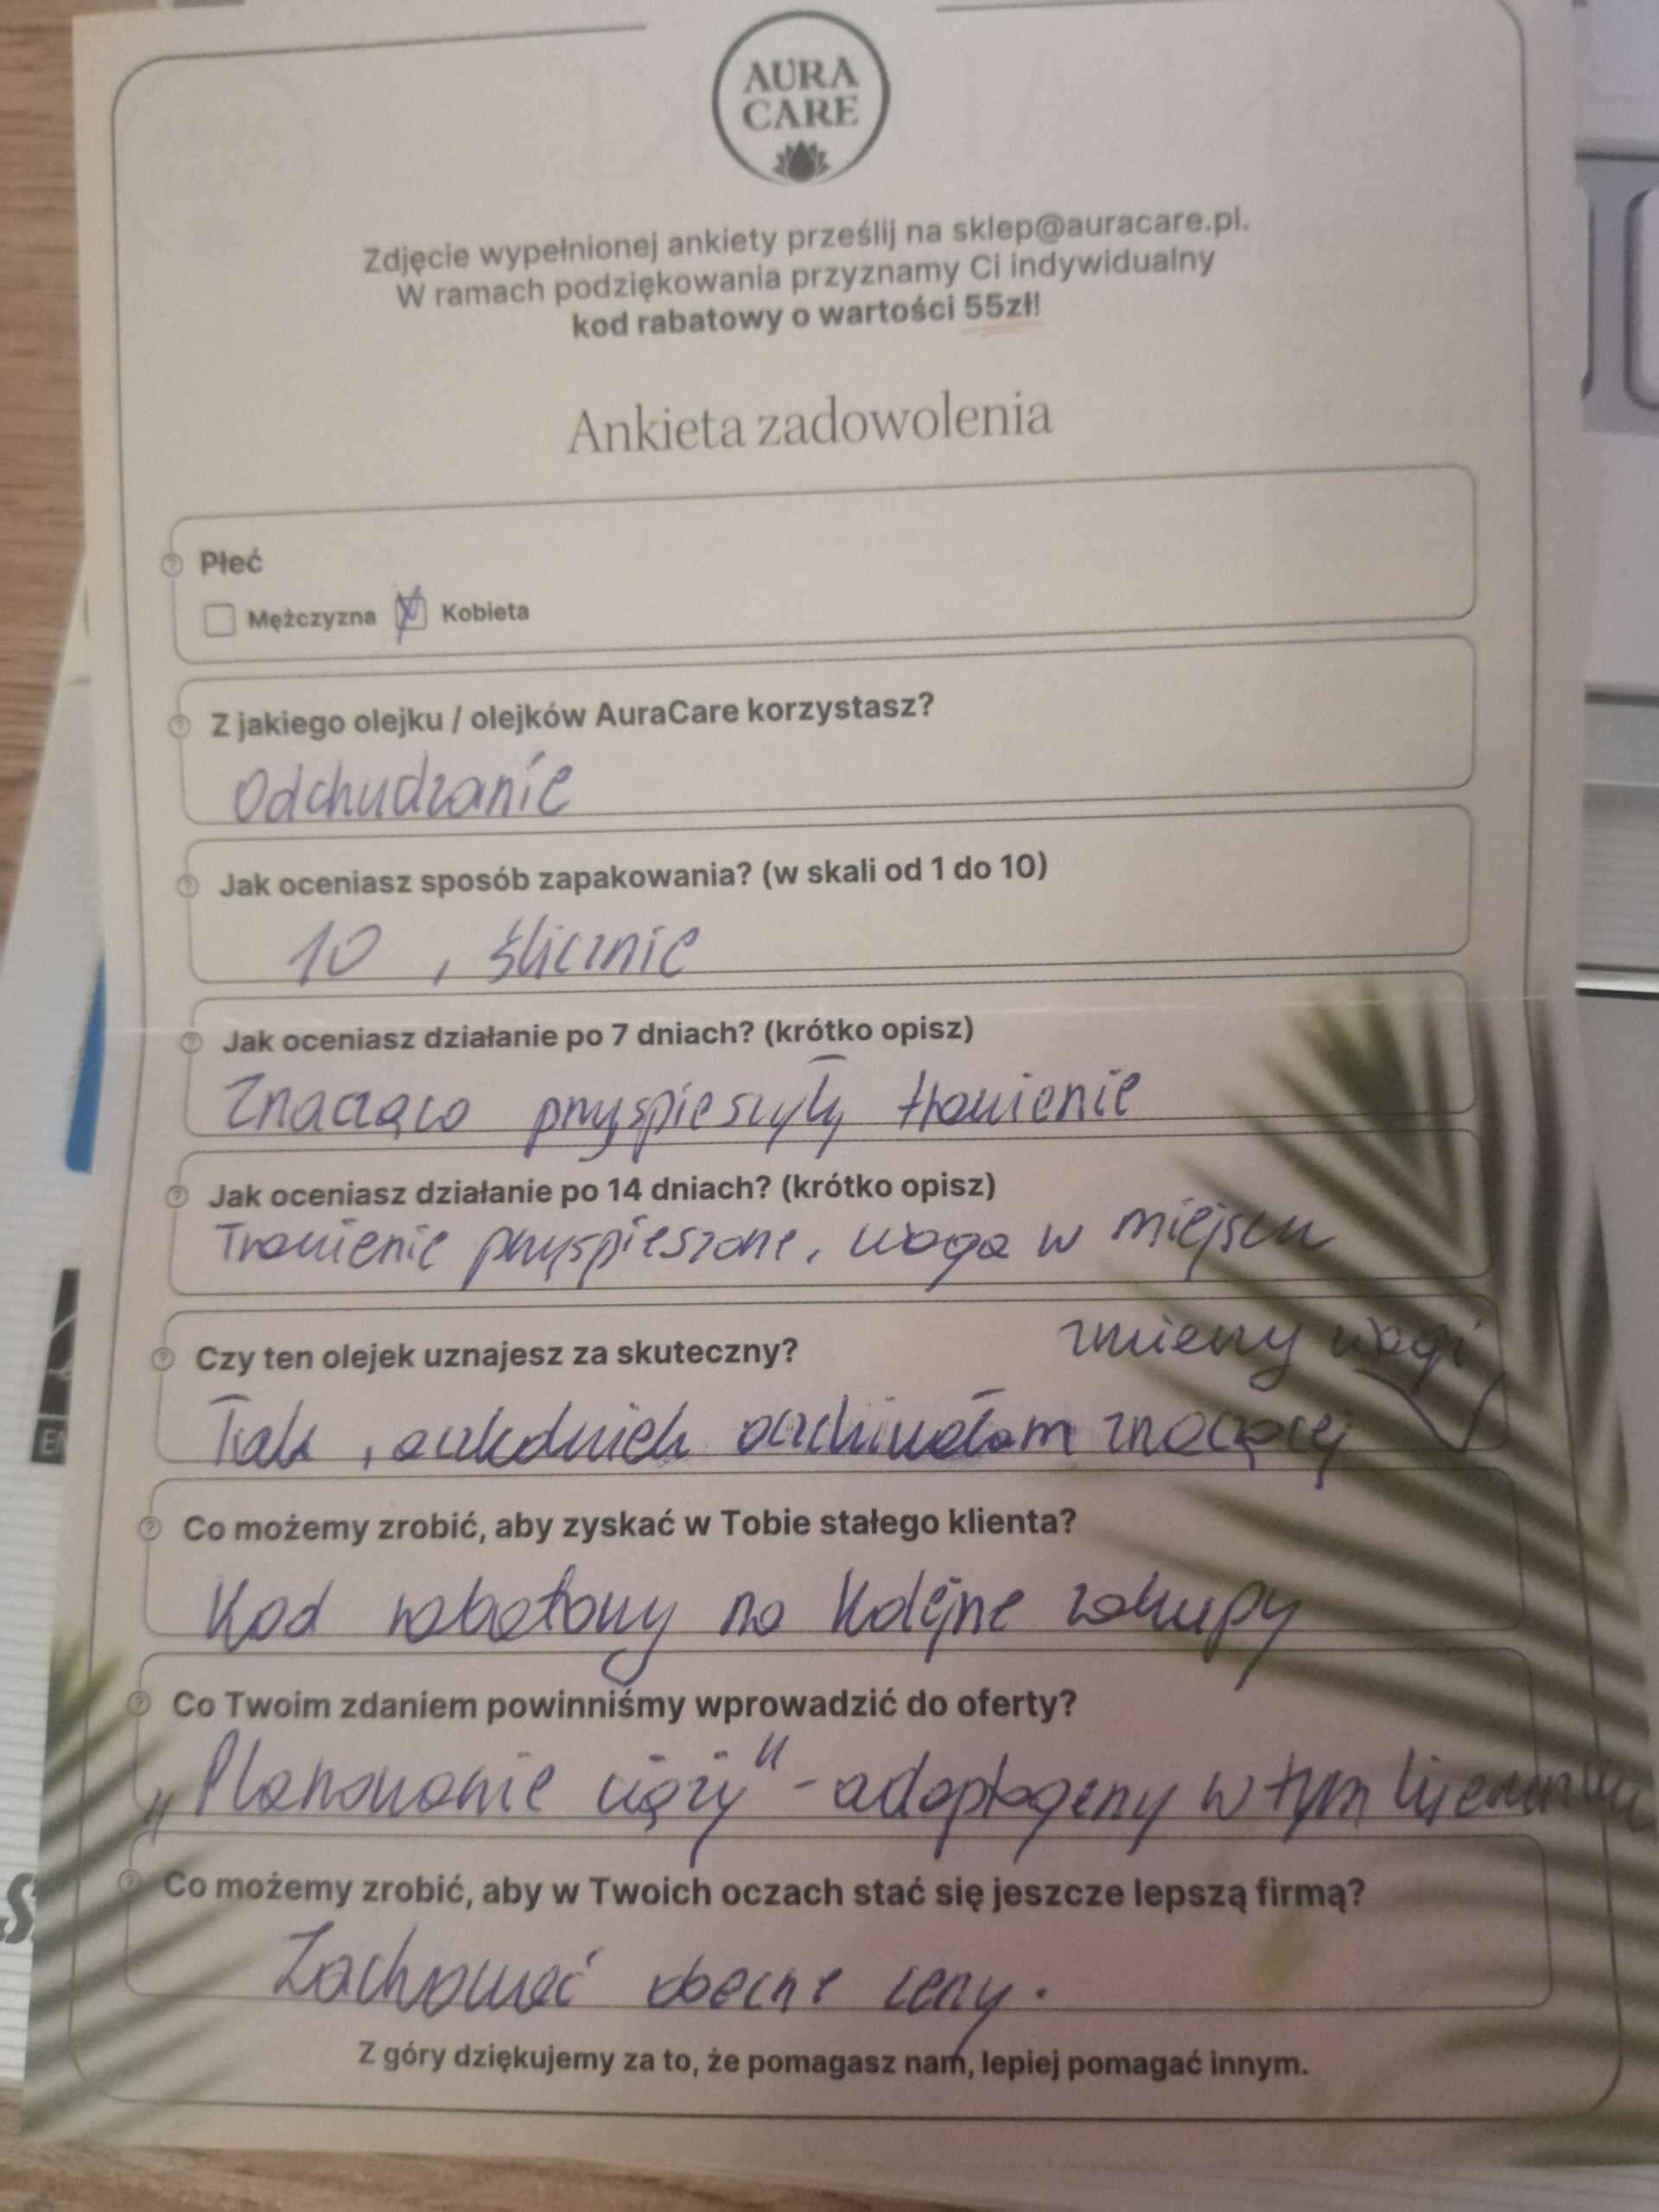 AURA
CARE
Zdjęcie wypełnionej ankiety prześlij na sklep@auracare.pl.
W ramach podziękowania przyznamy Ci indywidualny
kod rabatowy o wartości 55zł!
Ankieta zadowolenia
Płeć
Mężczyzna Kobieta
Z jakiego olejku / olejków AuraCare korzystasz?
Odchudzanie
Jak oceniasz sposób zapakowania? (w skali od 1 do 10)
10, ślicznie
Jak oceniasz działanie po 7 dniach? (krótko opisz)
Znacząco przyspieszyły trawienie
Jak oceniasz działanie po 14 dniach? (krótko opisz)
Trawienie przyspieszone, waga w miejscu
Czy ten olejek uznajesz za skuteczny?
zmiany wagi
Tak, aczkolwiek oczekiwałam znaczącej
Co możemy zrobić, aby zyskać w Tobie stałego klienta?
Kod rabatowy na kolejne zakupy
Co Twoim zdaniem powinniśmy wprowadzić do oferty?
„Planowanie ciąży" - adaptogeny w tym
Co możemy zrobić, aby w Twoich oczach stać się jeszcze lepszą firmą?
Zachować obecne ceny.
Z góry dziękujemy za to, że pomagasz nam, lepiej pomagać innym.